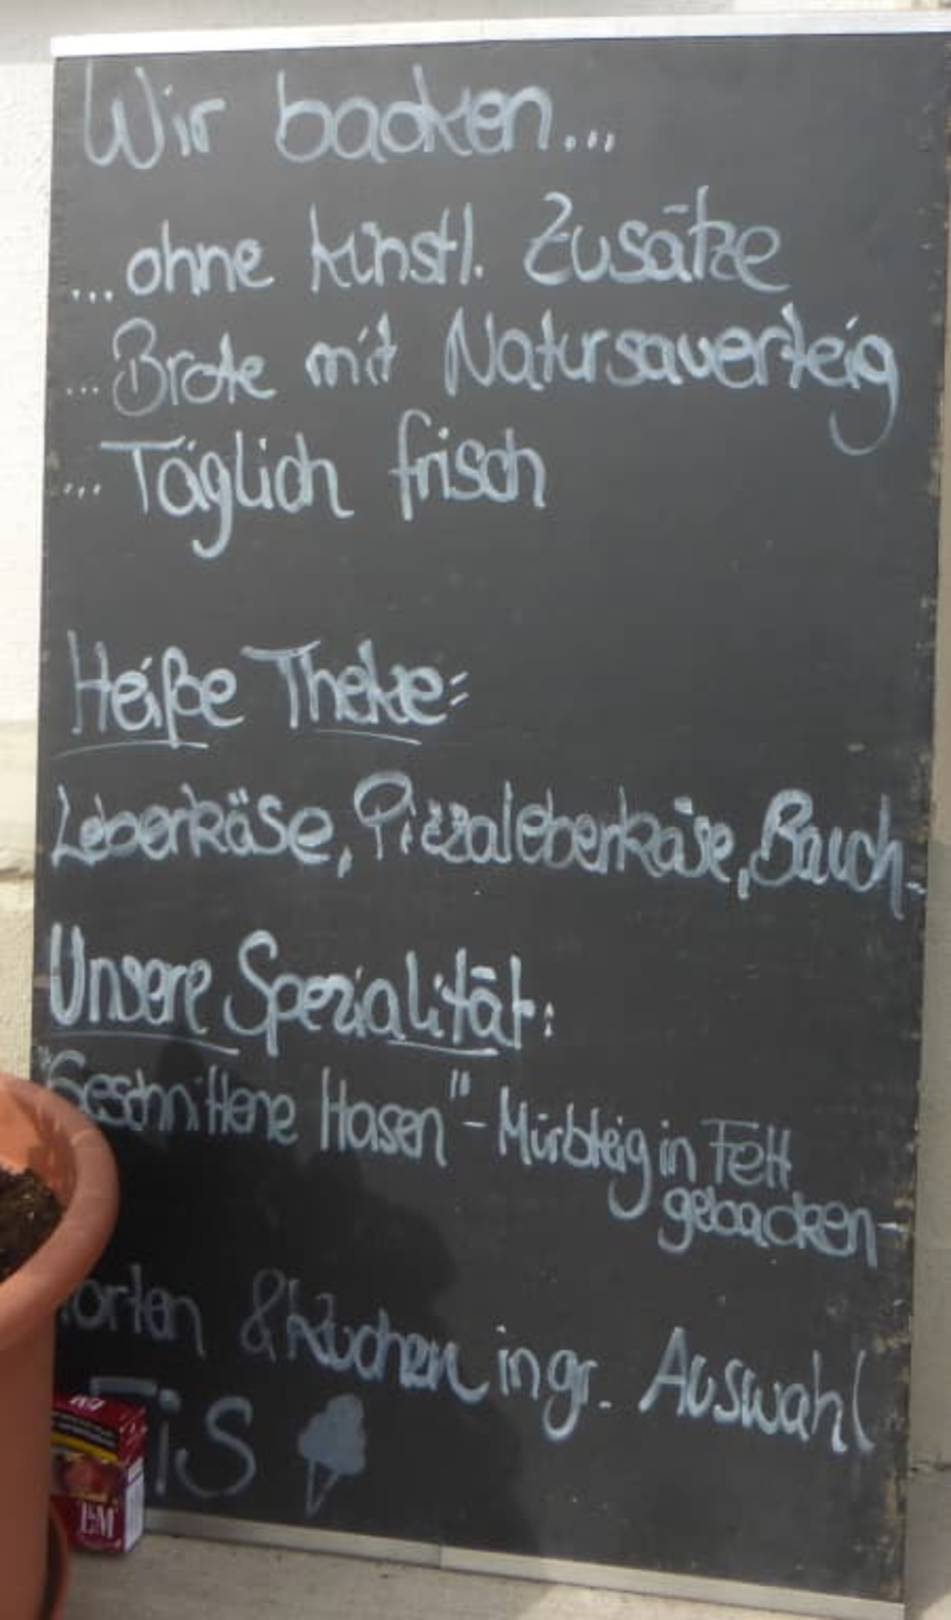 Wir backen...
...ohne künstl. Zusätze
...Brote mit Natursauerteig
...Täglich frisch
Heiße Theke:
Leberkäse, Pizzaleberkäse, Bauch-
Unsere Spezialität:
"Geschnittene Hasen" - Mürbteig in Fett
gebacken-
Torten & Kuchen in gr. Auswahl
Eis
L&M